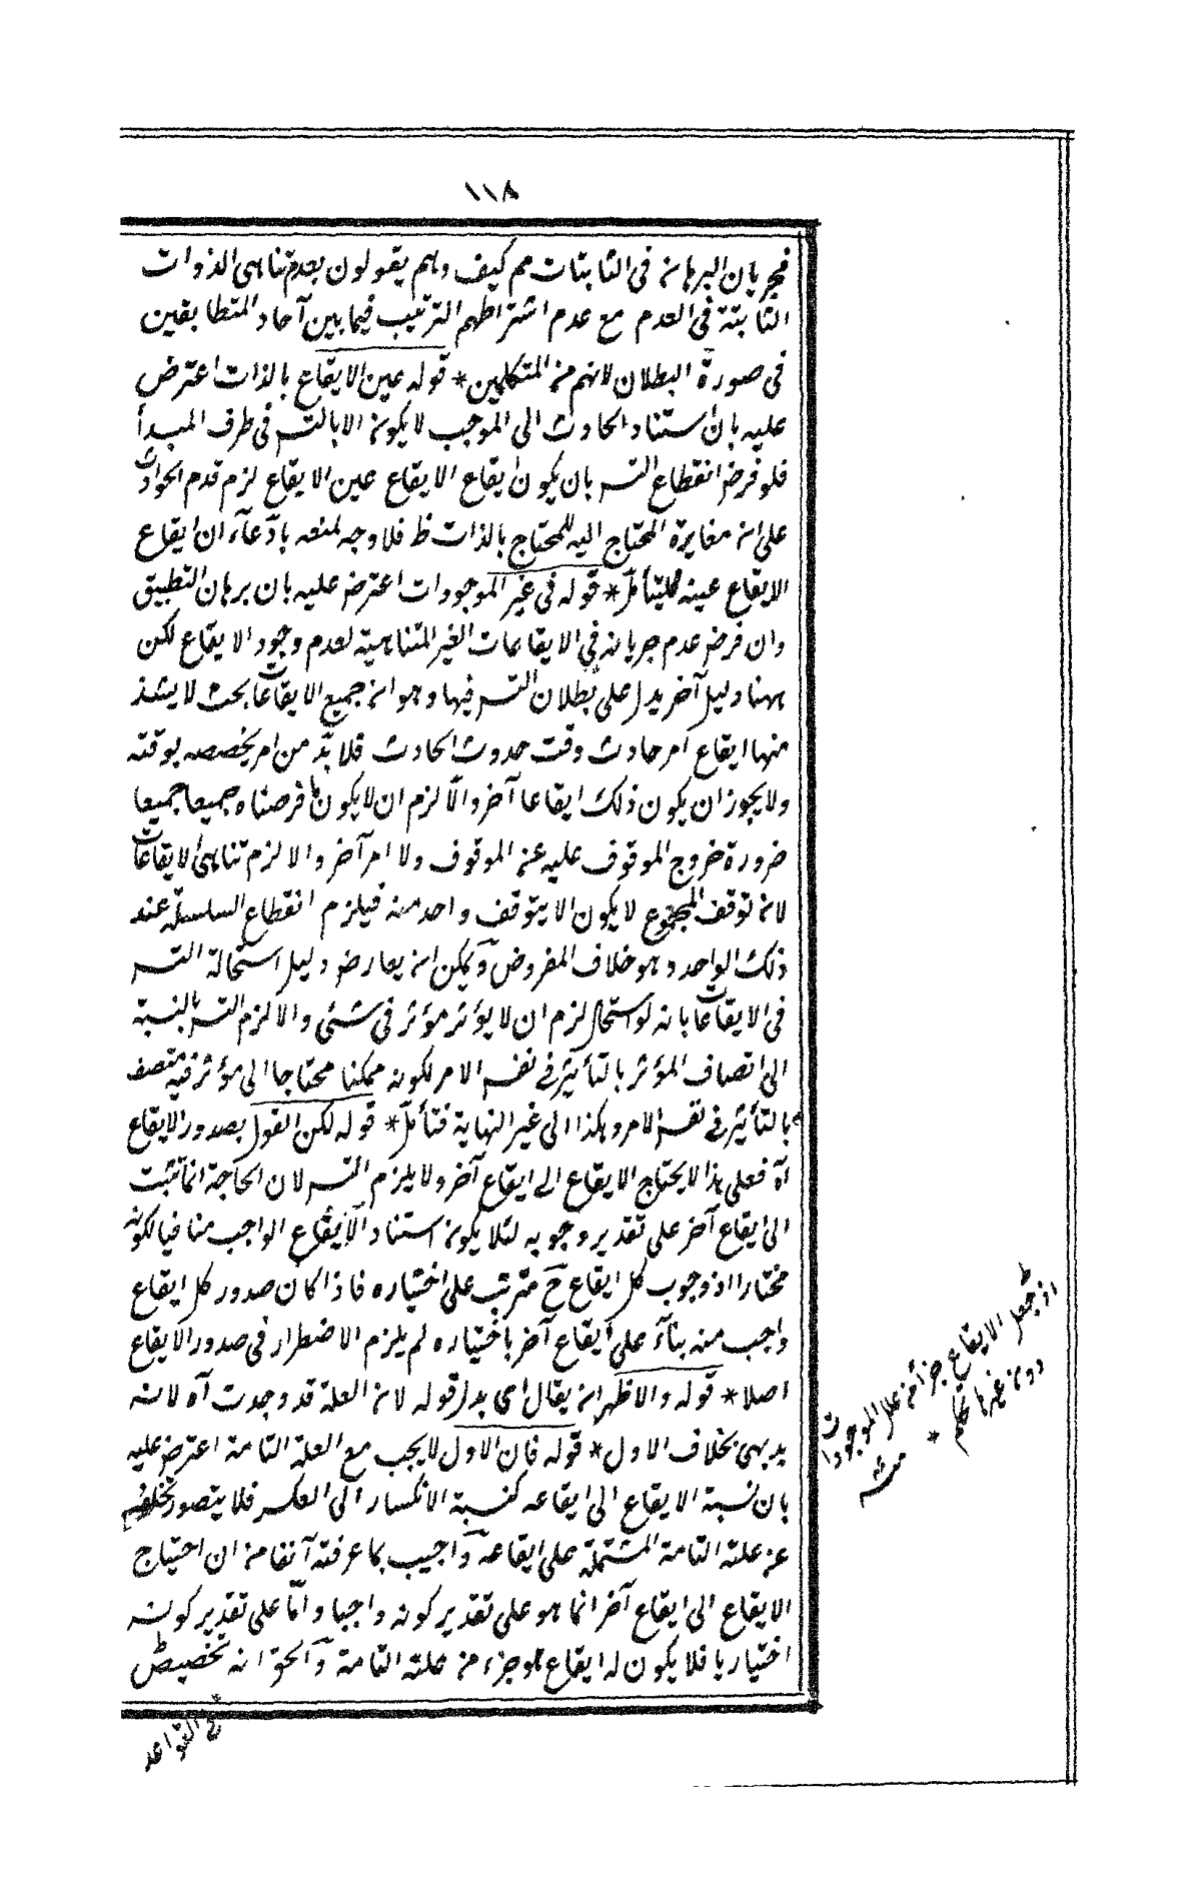 ١١٨
فجريان البرهان في الثابتات مم كيف وهم يقولون بعدم تناهى الذوات
الثابتة في العدم مع عدم اشتراطهم الترتيب فيما بين آحاد المتطابقين
في صورة البطلان لانهم من المتكلمين * قوله عين الايقاع بالذات اعترض
عليه بان استناد الحادث الى الموجب لا يكون الا بالتسـ في طرف المبدأ
فلو فرض انقطاع التسـ بان يكون ايقاع الايقاع عين الايقاع لزم قدم الحوادث
على ان مغايرة المحتاج اليه للمحتاج بالذات ظ فلا وجه لمنعه بادّعآء ان ايقاع
الايقاع عينه فليتأمل * قوله في غير الموجودات اعترض عليه بان برهان التطبيق
وان فرض عدم جريانه في الايقاعات الغير المتناهية لعدم وجود الايقاع لكن
ههنا دليل آخر يدل على بطلان التسـ فيها وهو ان جميع الايقاعات بحيث لا يشذ
منها ايقاع امر حادث وقت حدوث الحادث فلا بدّ من امر يخصصه بوقته
ولا يجوز ان يكون ذلك ايقاعا آخر والّا لزم ان لا يكون ما فرضناه جميعا جميعا
ضرورة خروج الموقوف عليه عن الموقوف ولا امر آخر والا لزم تناهى الايقاعات
لان توقف المجموع لا يكون الا بتوقف واحد منه فيلزم انقطاع السلسلة عند
ذلك الواحد وهو خلاف المفروض ويمكن ان يعارض دليل استحالة التسـ
في الايقاعات بانه لو استحال لزم ان لا يؤثر مؤثر في شئ والا لزم التسـ بالنسبة
الى اتصاف المؤثر بالتأثير في نفس الامر لكونه ممكنا محتاجا الى مؤثر فيه متصف
بالتأثير في نفس الامر وهكذا الى غير النهاية فتأمل * قوله لكن القول بصدور الايقاع
آه فعلى هذا لا يحتاج الايقاع الى ايقاع آخر ولا يلزم التسـ لان الحاجة انما تثبت
الى ايقاع آخر على تقدير وجوبه لئلا يكون استناد الايقاع الواجب منافيا لكونه
مختارا اذ وجوب كل ايقاع ح مترتب على اختياره فاذا كان صدور كل ايقاع
واجب منه بنآء على ايقاع آخر باختياره لم يلزم الاضطرار في صدور الايقاع
اصلا * قوله والاظهر ان يقال اى بدل قوله لان العلة قد وجدت آه لانه
بديهى بخلاف الاول * قوله فان الاول لا يجب مع العلة التامة اعترض عليه
بان نسبة الايقاع الى ايقاعه كنسبة الانكسار الى العكس فلا يتصور تخلفهم
عن علته التامة المشتملة على ايقاعه واجيب بما عرفته آنفا من ان احتياج
الايقاع الى ايقاع آخر انما هو على تقدير كونه واجبا وامّا على تقدير كونه
اختياريا فلا يكون له ايقاع هو جزء من علته التامة والحق انه تخصيص
القواعد
اذ جعل الايقاع جزأ من علل الموجودات
دون غيرها تحكم *
منه